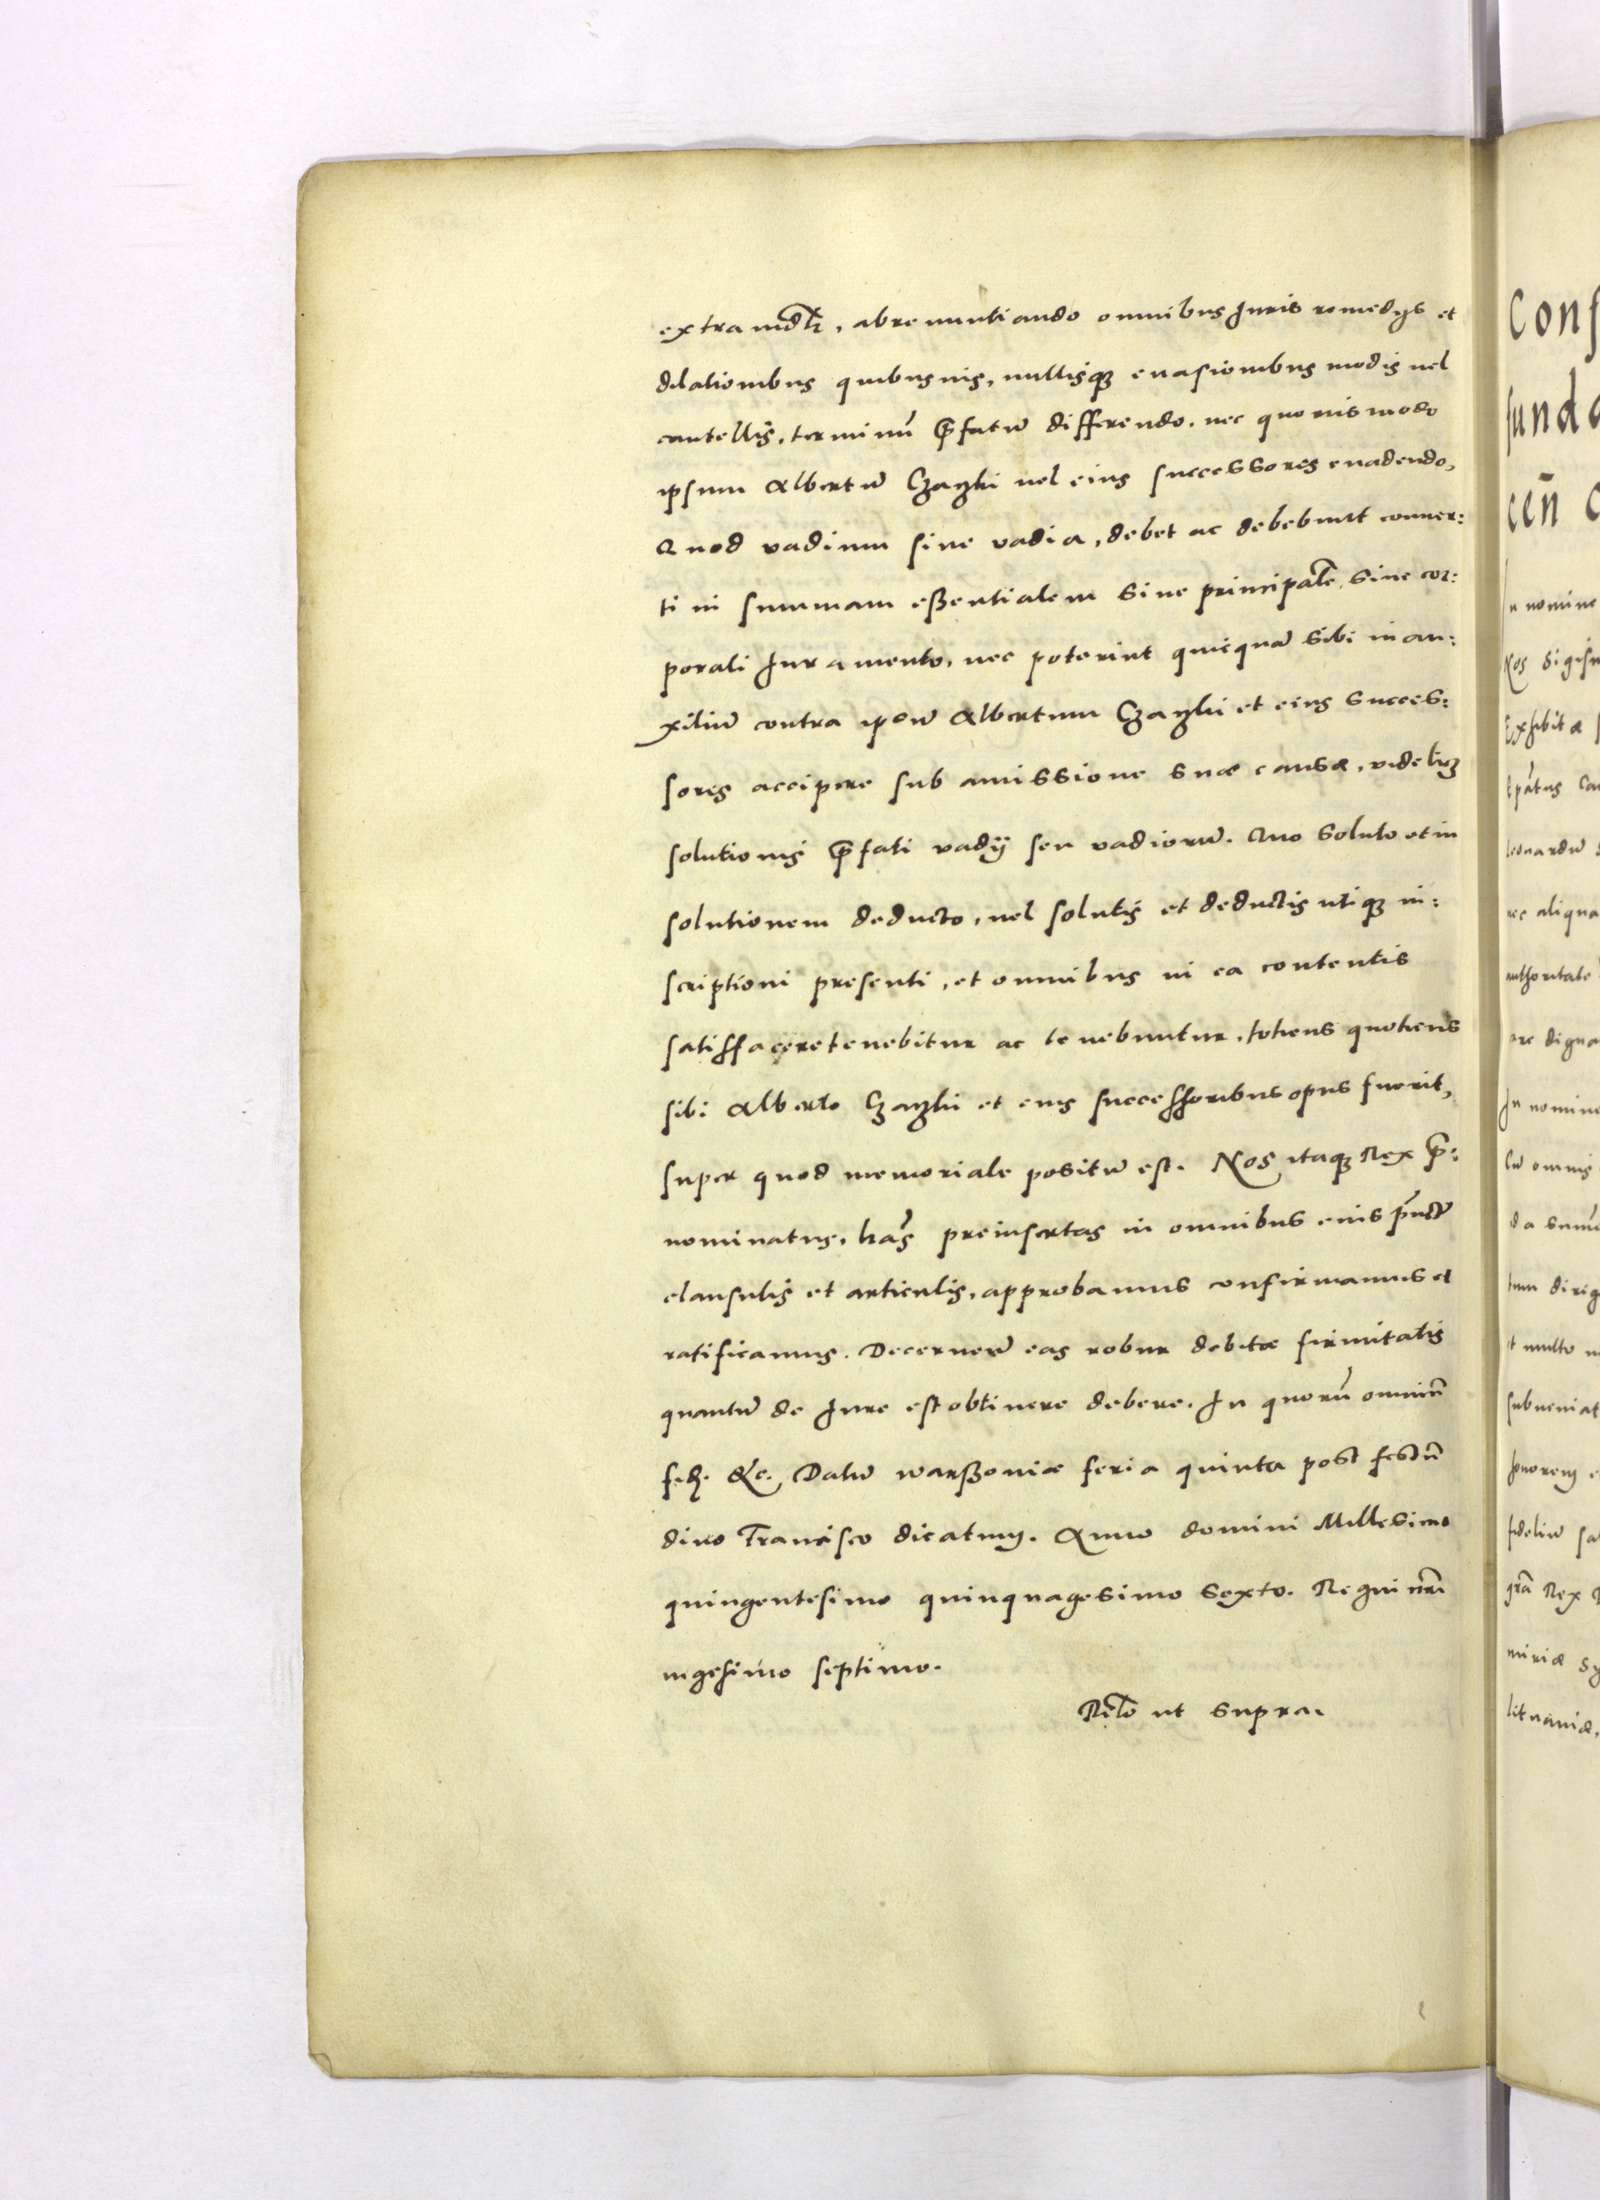 extra iudℓr, abrenuntiando omnibus Juris remedijs et
dilationibus quibusuis, nullisq3 euasionibus modis uel
cautellis, terminū p̄fatū differendo, nec quouismodo
ipsum Albertū Czazki uel eius successores euadendo,
Quod vadium siue vadia, debet ac debebunt conuer:
ti in summam eßentialem siue principalē, Siue cor:
porali Juramento, nec poterint quicquā sibi in au:
xiliū contra ipsū Albertum Czazki et eius succes:
sores accipere sub amissione suæ causæ, videlicz
solutionis p̄fati vadij seu vadiorū. Quo soluto et in
solutionem deducto, uel solutis et deductis utiq3 in:
scriptioni presenti, et omnibus in ea contentis
satisffacere tenebitur ac tenebuntur, totiens quotiens
sibi Alberto Czazki et eius successoribus opus fuerit,
super quod memoriale positū est. Nos itaq3 Rex p̄:
nominatus, hās preinsertas in omnibus eius pūnctis
clausulis et articulis, approbamus confirmamus et
ratificamus. Decernen̄ eas robur debitæ firmitatis
quantū de Jure est obtinere debere. In quorū omniū
f. &c. Datū warßouiæ feria quinta post festū
diuo Francisco dicatum. Anno domini Millesimo
quingentesimo quinquagesimo sexto. Regni nr̄i
uigesimo septimo.
Relō ut supra.
Conf
funda
cen̄
In nomine
Nos Sigism
Exhibitæ
Leonardū
nec aliqua
authoritate
are digna
In nomine
Cū omnis
da summ
tum dirig
et multo
subueniat
honorem
fidelium sa
gr̄a Rex
lituaniæ,